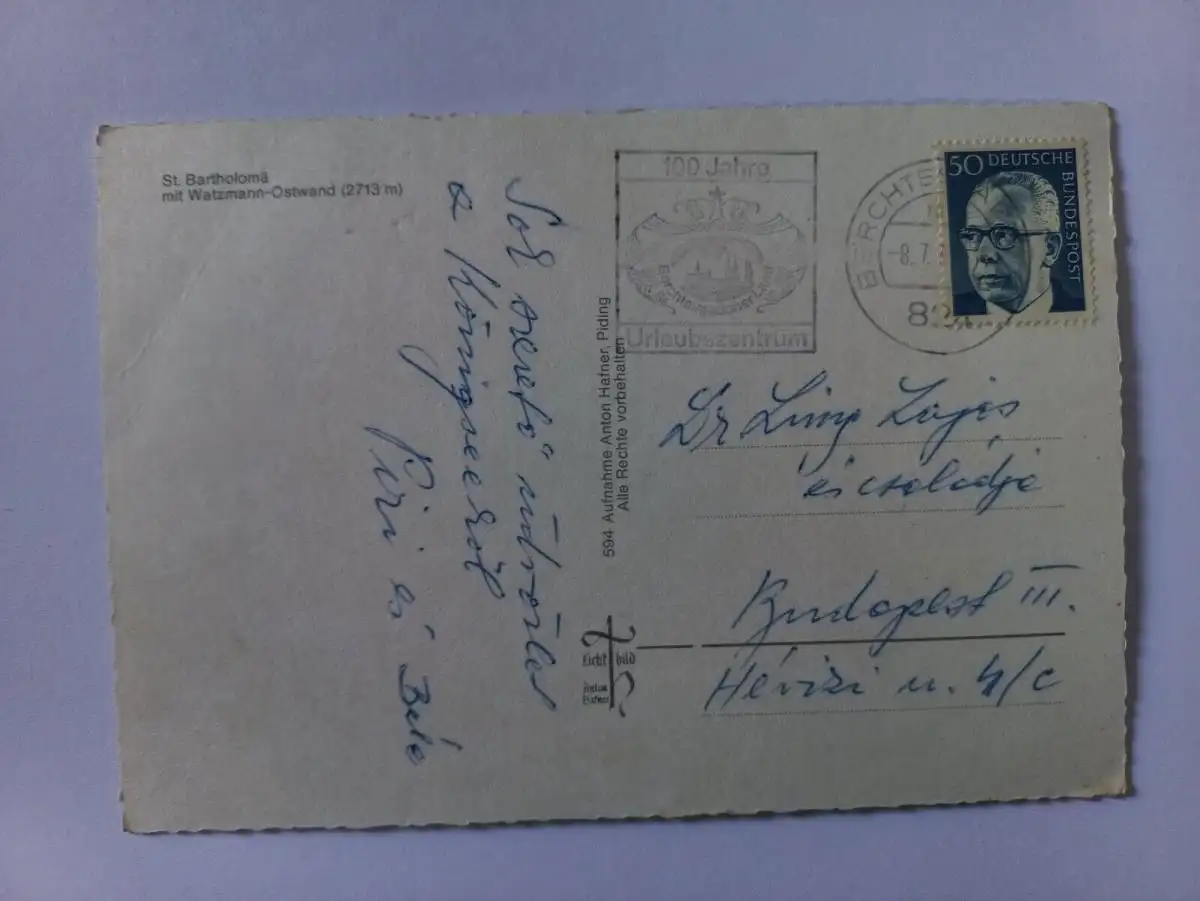 St. Bartholomä
mit Watzmann-Ostwand (2713 m)
Sok szerető üdvözlet
a Königseeről
Piri és Béla
594 Aufnahme Anton Hafner, Piding
Alle Rechte vorbehalten
Licht bild
Anton
Hafner
100 Jahre
Berchtesgadener Land
Urlaubszentrum
BERCHTE
-8.7.
50 DEUTSCHE
BUNDESPOST
Dr Lajos
és családja
Budapest III.
Hévizi u. 4/c